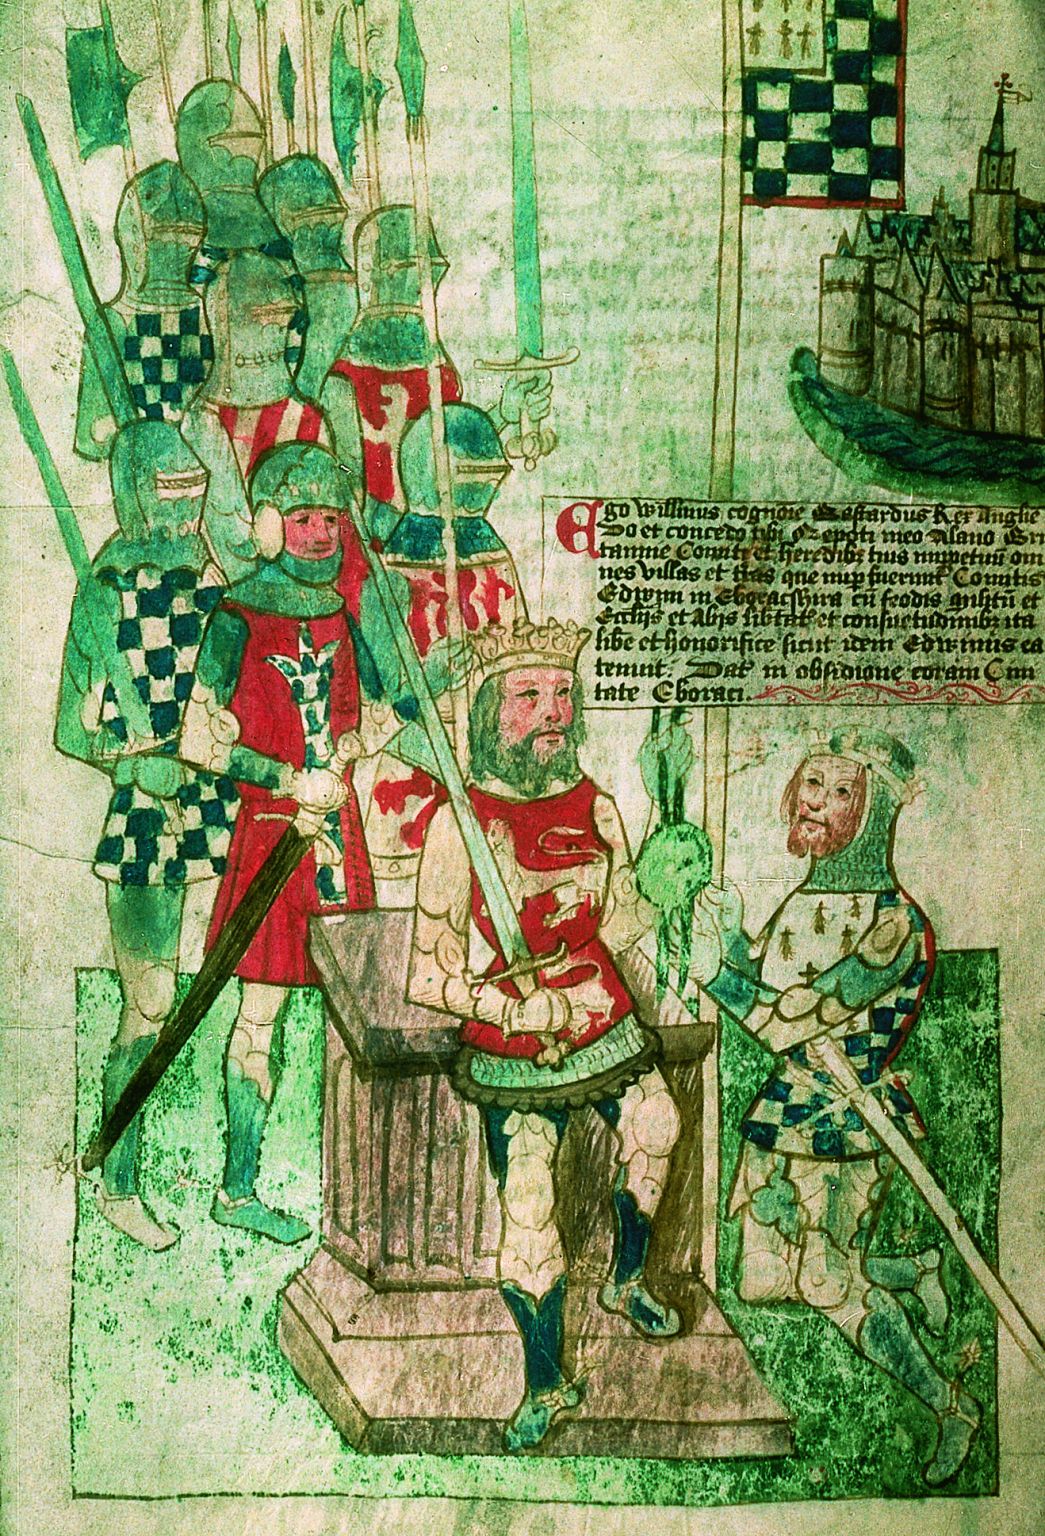 Ego Willmus cognoīe Bastardus Rex Anglie
Do et concedo tibi Nepoti meo Alano Bri
tannie Comiti et heredibȝ tuis imppetuū om
nes villas et tras que nup fuerunt Comitis
Edwyni in Eboracshira cū feodis militū et
Ecclijs et Abijs libtatibȝ et consuetudinibȝ ita
libe et honorifice sicut idem Edwinus ea
tenuit. Dat in obsidione coram Ciui
tate Eboraci.